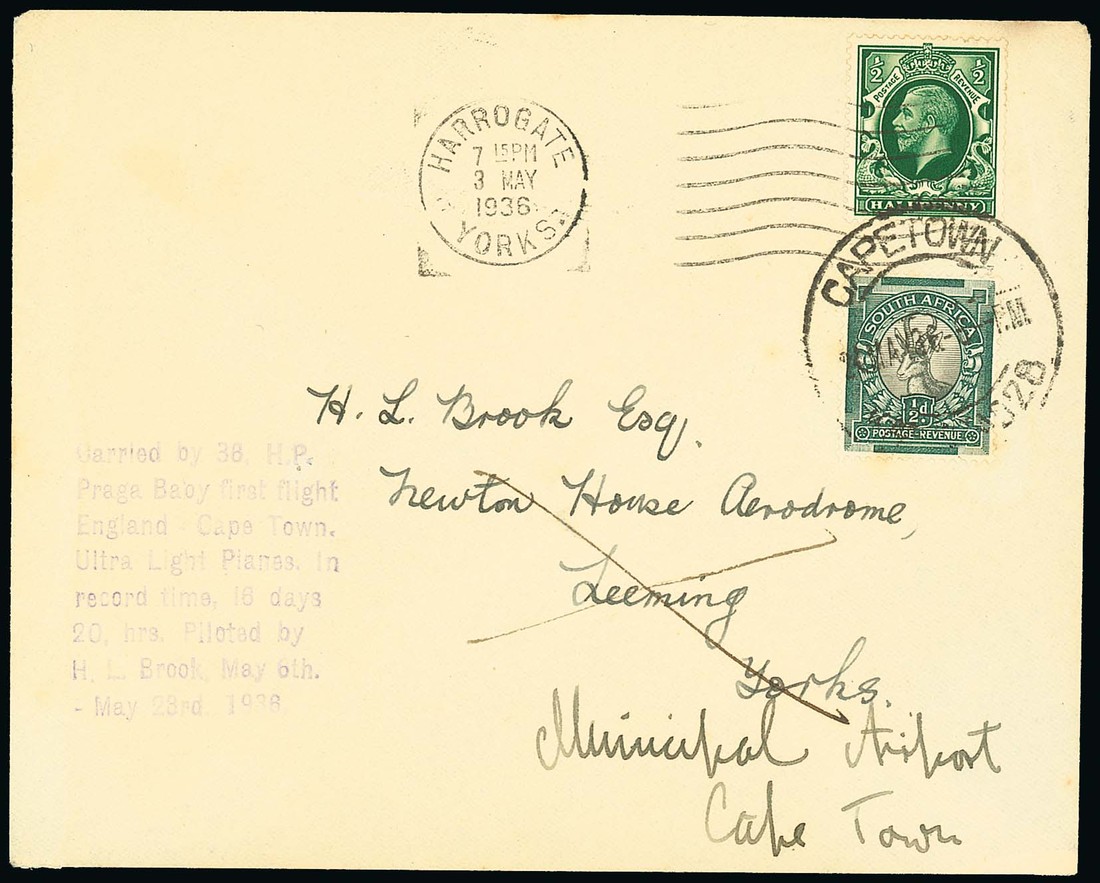 HARROGATE
7 15PM
3 MAY
1936
YORKS.
½ ½
POSTAGE REVENUE
CAPETOWN
SOUTH AFRICA
P.M
½d
POSTAGE-REVENUE
H. L. Brook Esq.
Newton House Aerodrome,
Leeming
Yorks.
Municipal Airport
Cape Town
Carried by 38, H.P.
Praga Baby first flight
England - Cape Town.
Ultra Light Planes. in
record time, 16 days
20, hrs. Piloted by
H. L. Brook, May 6th.
- May 23rd. 1936